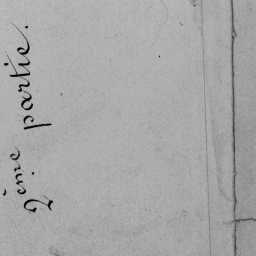 2ème partie.